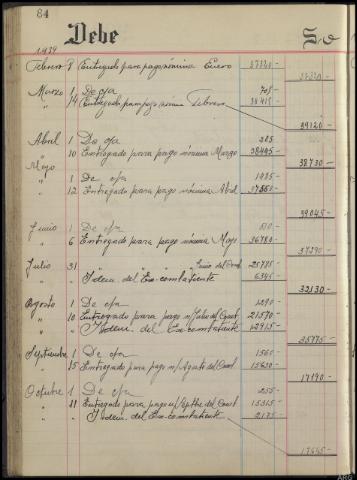 84
Debe
1939
Febrero 8 Entregado para pago nómina Enero 37320-
37320-
Marzo 1 De cja 705-
" 14 Entregado para pago nómina Febrero 38415-
39120-
Abril 1 De cja 285
" 10 Entregado para pago nómina Marzo 38445-
38730-
Mayo
" 1 De cja 1495-
" 12 Entregado para pago nómina Abril 37550-
39045-
Junio 1 De cja 510-
" 6 Entregado para pago nómina Mayo 36780-
37290-
Julio 31 Junio del Const 25785
" Idem del Ex-combatiente 6345-
32130-
Agosto 1 De cja 1290-
" 10 Entregado para pago n/Julio del Const 21570-
" Idem del Ex-combatiente 12915-
35775-
Septiembre 1 De cja 1560-
" 15 Entregado para pago n/Agosto del Const 15630-
17190-
Octubre 1 De cja 255-
" 11 Entregado para pago n/Septbre del Const 15315-
" Idem del Ex-combatiente 2175-